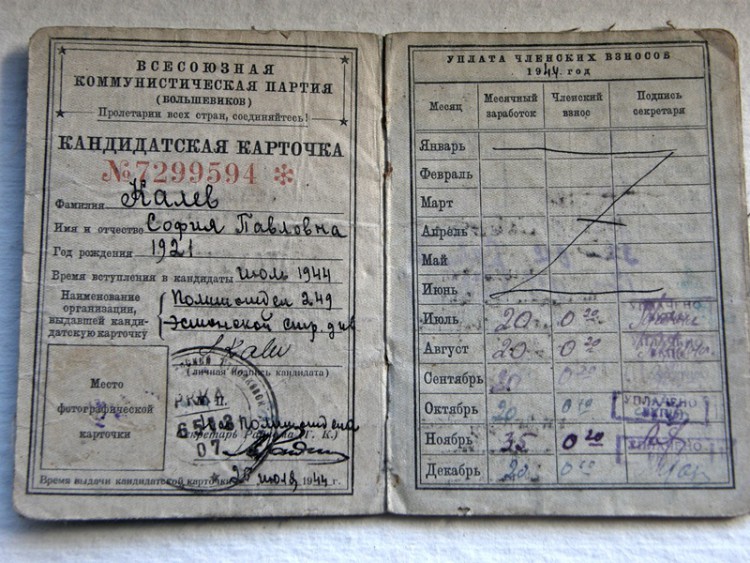 ВСЕСОЮЗНАЯ
КОММУНИСТИЧЕСКАЯ ПАРТИЯ
(БОЛЬШЕВИКОВ)
Пролетарии всех стран, соединяйтесь!
КАНДИДАТСКАЯ КАРТОЧКА
№ 7299594 *
Фамилия Калев
Имя и отчество София Павловна
Год рождения 1921
Время вступления в кандидаты июль 1944
Наименование организации, выдавшей кандидатскую карточку
Политотдел 249
Эстонской стр. див
S. Kalev
(личная подпись кандидата)
Место
фотографической
карточки
Нач Политотдела
Секретарь Райкома (Г. К.)
07
Время выдачи кандидатской карточки 20 июля 1944 г.
УПЛАТА ЧЛЕНСКИХ ВЗНОСОВ
1944 год
Месяц Месячный заработок Членский взнос Подпись секретаря
Январь
Февраль
Март
Апрель
Май
Июнь
Июль 20 0 20
Август 20 0 20
Сентябрь 20 0 20
Октябрь 20 0 20 УПЛАЧЕНО
Ноябрь 35 0 20
Декабрь 20 0 20